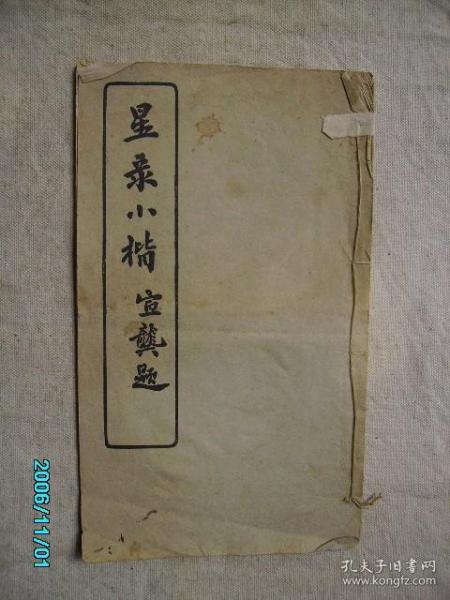 星录小楷 宣龚题
2006/11/01
孔夫子旧书网
www.kongfz.com